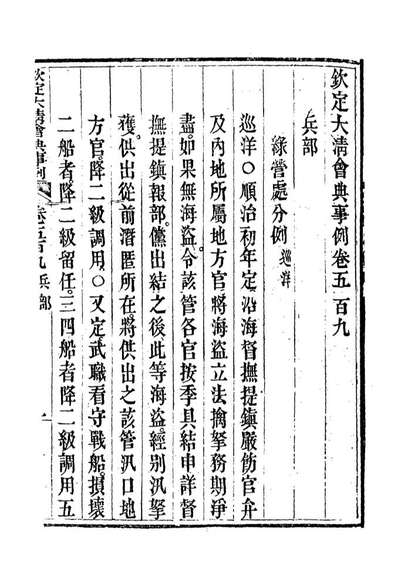 欽定大清會典事例卷五百九
兵部
綠營處分例 巡洋
巡洋○順治初年定沿海督撫提鎮嚴飭官弁
及內地所屬地方官將海盜立法擒拏務期淨
盡如果無海盜令該管各官按季具結申詳督
撫提鎮報部儻出結之後此等海盜經別汛拏
獲供出從前潛匿所在將供出之該管汛口地
方官降二級調用○又定武職看守戰船損壞
二船者降二級留任三四船者降二級調用五
欽定大清會典事例 卷五百九 兵部 一